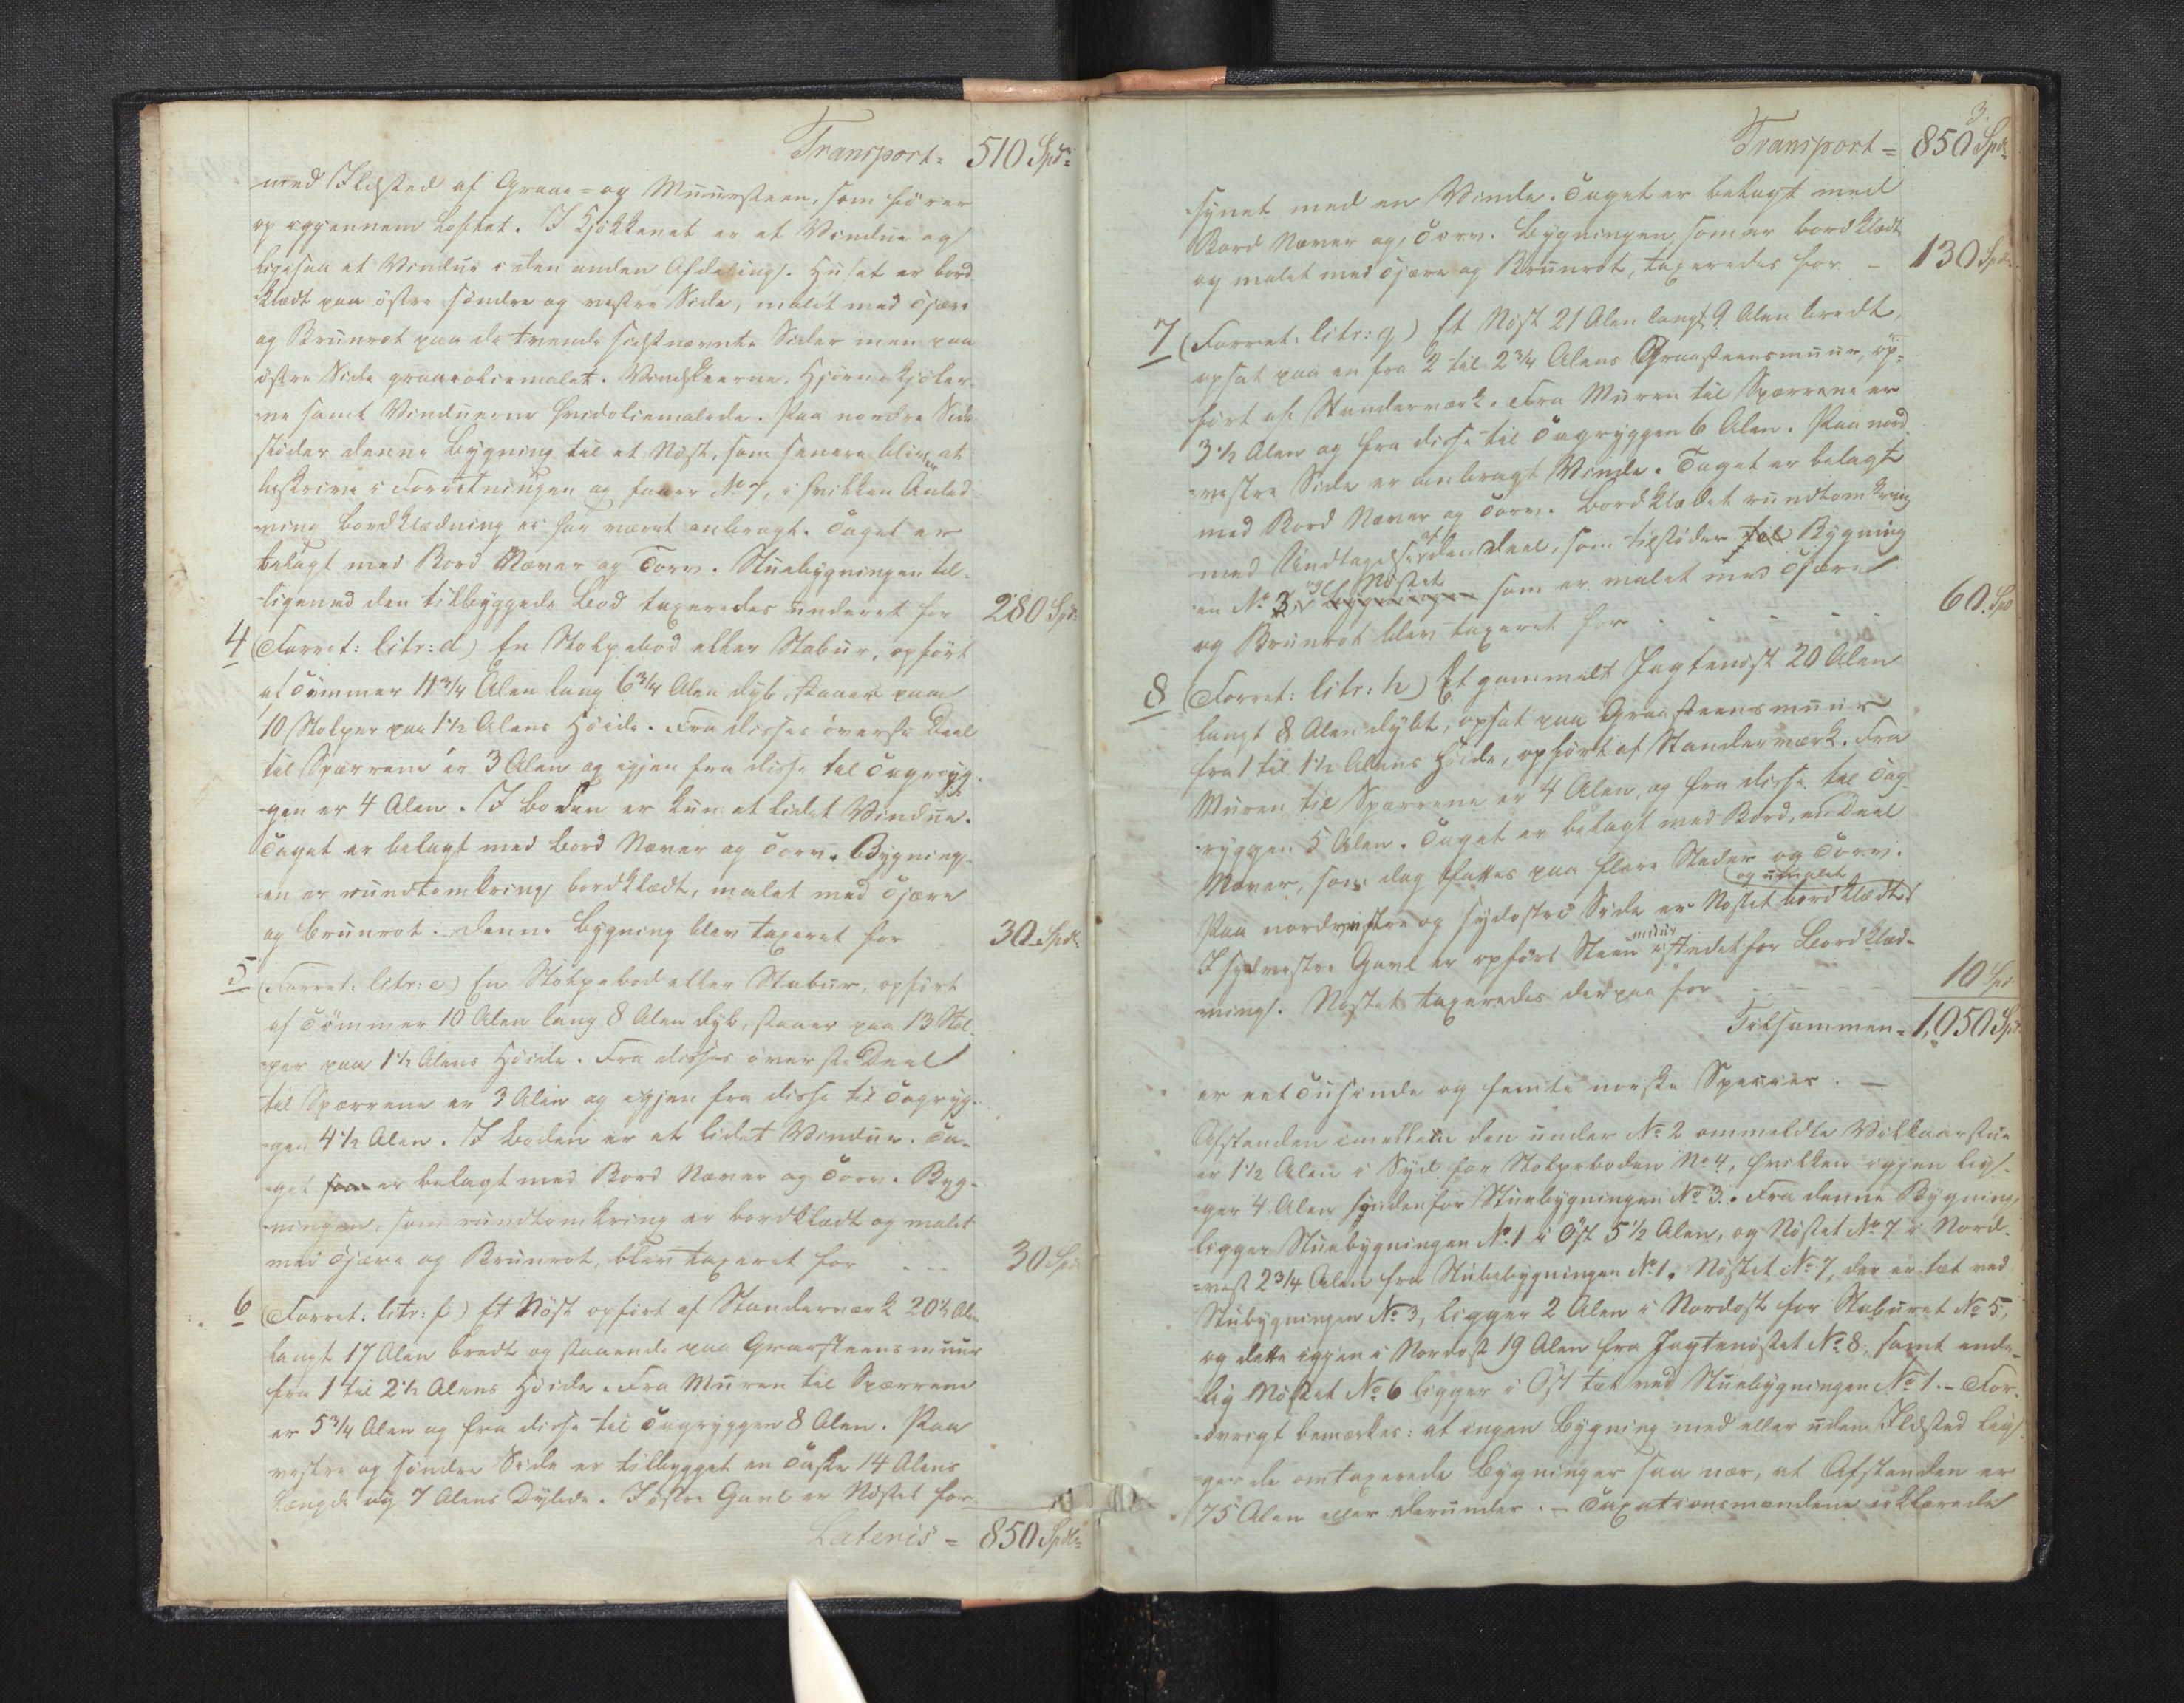 Transport = 510 Spd =
med Ildsted af Graae= og Muursteen, som fører
op igjennem Loftet. I Kjøkkenet er et Vindue og
ligesaa et Vindue i den anden Afdeling. Huset er bord-
klædt paa østre søndre og vestre Side, malet med Tjære
og Brunrot paa de tvende sidstnævnte Sider men paa
østre Side graaeoliemalet. Vindskeerne, Hjørnekjøler-
ne samt Vinduerne hvidoliemalede. Paa nordre Side
støder denne Bygning til et Nøst, som senere bliver at
beskrive i Forretningen og faaer No 7, i hvilken Anled-
ning Bordklædning ei har været anbragt. Taget er
belagt med Bord Næver og Torv. Stuebygningen til-
ligemed den tilbyggede Bod taxeredes underet for 280 Spd:
4 (Forret: litr: d) En Stolpebod eller Stabur, opført
af Tømmer 11 3/4 Alen lang 6 3/4 Alen dyb, staaer paa
10 Stolper paa 1 1/2 Alens Høide. Fra disses øverste Deel
til Sparrene er 3 Alen og igjen fra disse til Tagryg-
gen er 4 Alen. I Boden er kun et lidet Vindue.
Taget er belagt med Bord Næver og Torv. Bygning-
en er rundtomkring bordklædt, malet med Tjære
og Brunrot. Denne Bygning blev taxeret for 30 Spd:
5 (Forret: litr: e) En Stolpebod eller Stabur, opført
af Tømmer 10 Alen lang 8 Alen dyb, staaer paa 13 Stol-
per paa 1 1/2 Alens Høide. Fra disses øverste Deel
til Sparrene er 3 Alen og igjen fra disse til Tagryg-
gen 4 1/2 Alen. I Boden er et lidet Vindue. Ta-
get som er belagt med Bord Næver og Torv. Byg-
ningen, som rundtomkring er bordklædt og malet
med Tjære og Brunrot, blev taxeret for 30 Spd:
6 (Forret: litr: f) Et Nøst opført af Standerværk 20 1/2 Alen
langt 17 Alen bredt og staaende paa Graasteensmuur
fra 1 til 2 1/2 Alens Høide. Fra Muren til Sparrene
er 5 3/4 Alen og fra disse til Tagryggen 8 Alen. Paa
vestre og søndre Side er tilbygget en Taske 14 Alens
Længde og 7 Alens Dybde. I østre Gavl er Nøstet for-
Lateris = 850 Spd =
3.
Transport = 850 Spd:
synet med en Vinde. Taget er belagt med
Bord Næver og Torv. Bygningen, som er bordklædt
og malet med Tjære og Brunrot, taxeredes for - 130 Spd:
7 (Forret: litr: g) Et Nøst 21 Alen langt 9 Alen bredt,
opsat paa en fra 2 til 2 3/4 Alens Graasteensmuur, op-
ført af Standerværk. Fra Muren til Sparrene er
3 1/2 Alen og fra disse til Tagryggen 6 Alen. Paa nord-
vestre Side er anbragt Vinde. Taget er belagt
med Bord Næver og Torv. Bordklædet rundtomkring
med Undtagelse af den Deel, som tilstøder til Bygning
en No 3, og Nøstet Bygningen som er malet med Tjære
og Brunrot blev taxeret for - - - 60 Spd
8 (Forret: litr: h) Et gammelt Jagtenøst 20 Alen
langt 8 Alen dybt, opsat paa Graasteensmuur
fra 1 til 1 1/2 Alens Høide, opført af Standerværk. Fra
Muren til Sparrene er 4 Alen, og fra disse til Tag-
ryggen 5 Alen. Taget er belagt med Bord, en Deel
Næver, som dog fattes paa flere Steder og Torv.
Paa nordvestre og sydostre Side er Nøstet bordklædt og umalet
I sydvestre Gavl er opført Steenmuur istedet for Bordklæd-
ning. Nøstet taxeredes derpaa for - - - 10 Spd
Tilsammen = 1,050 Spd
er eet Tusinde og femti norske Species. -
Afstanden imellem den under No 2 ommeldte Vilkaarstue
er 1 1/2 Alen i Syd for Stolpeboden No 4, hvilken igjen lig-
ger 4 Alen søndenfor Stuebygningen No 3. Fra denne Bygning
ligger Stuebygningen No 1 i Øst 5 1/2 Alen, og Nøstet No 7 i Nord-
vest 2 3/4 Alen fra Stuebygningen No 1. Nøstet No 7, der er tæt ved
Stubygningen No 3, ligger 2 Alen i Nordost for Staburet No 5,
og dette igjen i Nordost 19 Alen fra Jagtenøstet No 8, samt ende-
lig Nøstet No 6 ligger i Øst tæt ved Stuebygningen No 1. - For-
øvrigt bemærkes: at ingen Bygning med eller uden Ildsted lig-
ger de omtaxerede Bygninger saa nær, at Afstanden er
75 Alen eller derunder. - Taxationsmændene erklærede